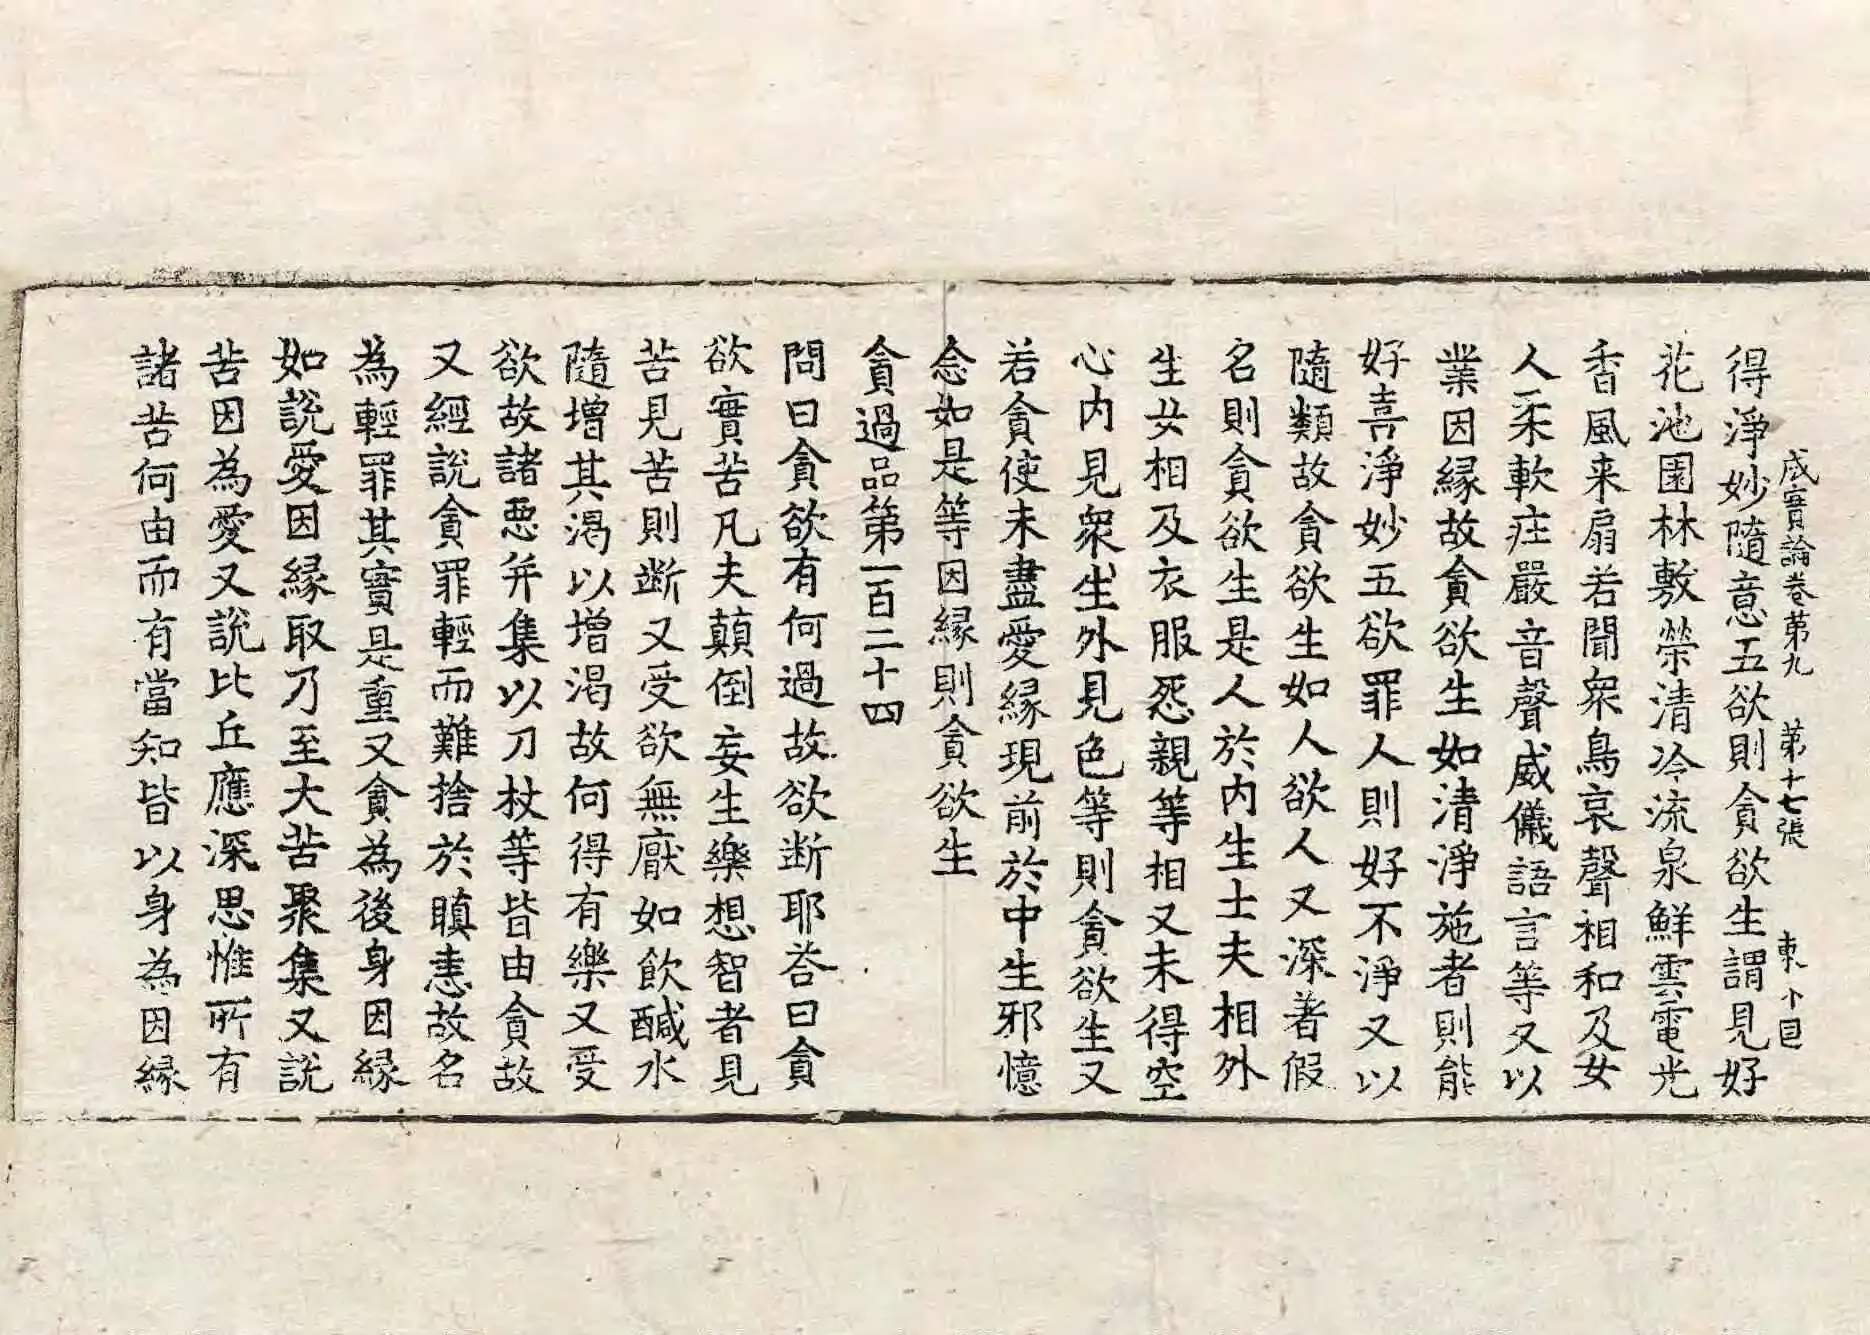 成實論卷第九　第十七張　東
得淨妙隨意五欲則貪欲生謂見好
花池園林敷榮清冷流泉鮮雲電光
香風来扇若聞衆鳥哀聲相和及女
人柔軟在嚴音聲威儀語言等又以
業因緣故貪欲生如清淨施者則能
好喜淨妙五欲罪人則好不淨又以
隨類故貪欲生如人欲人又深著假
名則貪欲生是人於内生士夫相外
生女相及衣服怨親等相又未得空
心内見衆生外見色等則貪欲生又
若貪使未盡愛緣現前於中生邪憶
念如是等因緣則貪欲生
貪過品第一百二十四
問曰貪欲有何過故欲断耶荅曰貪
欲實苦凡夫顛倒妄生樂想智者見
苦見苦則断又受欲無猒如飲醎水
隨增其渴以增渴故何得有樂又受
欲故諸惡并集以刀杖等皆由貪故
又經說貪罪輕而難捨於瞋恚故名
為輕罪其實是重又貪為後身因緣
如說愛因緣取乃至大苦聚集又說
苦因為愛又說比丘應深思惟所有
諸苦何由而有當知皆以身為因緣